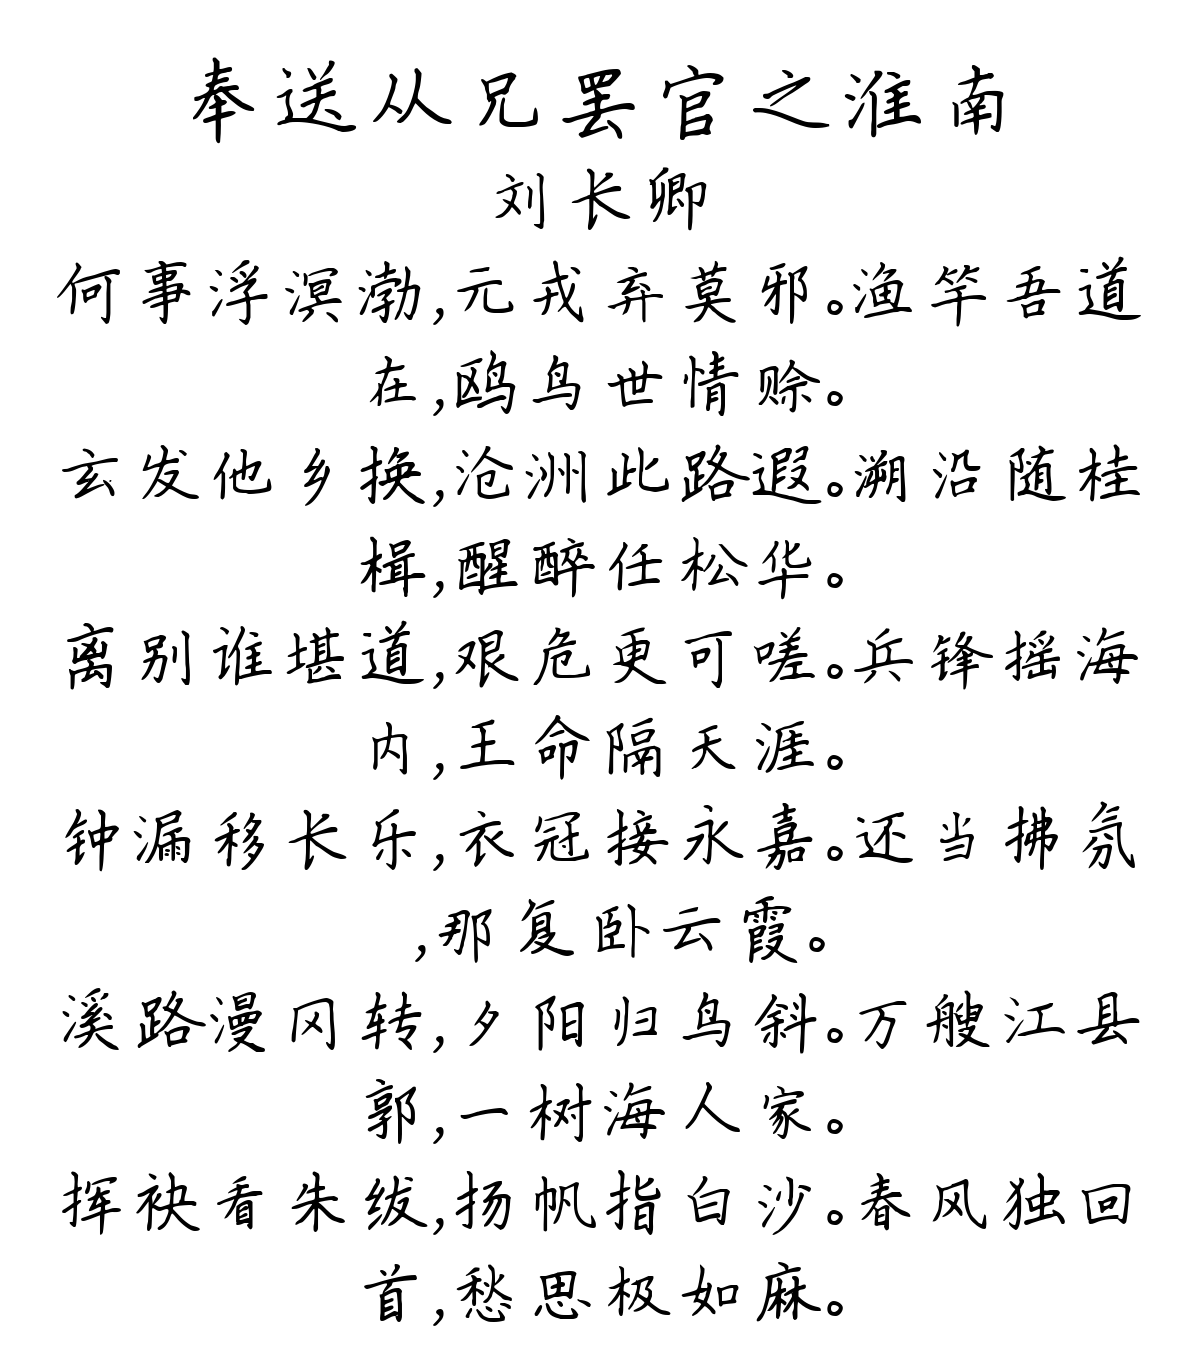 奉送从兄罢官之淮南
刘长卿
何事浮溟渤,元戎弃莫邪。渔竿吾道
在,鸥鸟世情赊。
玄发他乡换,沧洲此路遐。溯沿随桂
楫,醒醉任松华。
离别谁堪道,艰危更可嗟。兵锋摇海
内,王命隔天涯。
钟漏移长乐,衣冠接永嘉。还当拂氛
,那复卧云霞。
溪路漫冈转,夕阳归鸟斜。万艘江县
郭,一树海人家。
挥袂看朱绂,扬帆指白沙。春风独回
首,愁思极如麻。